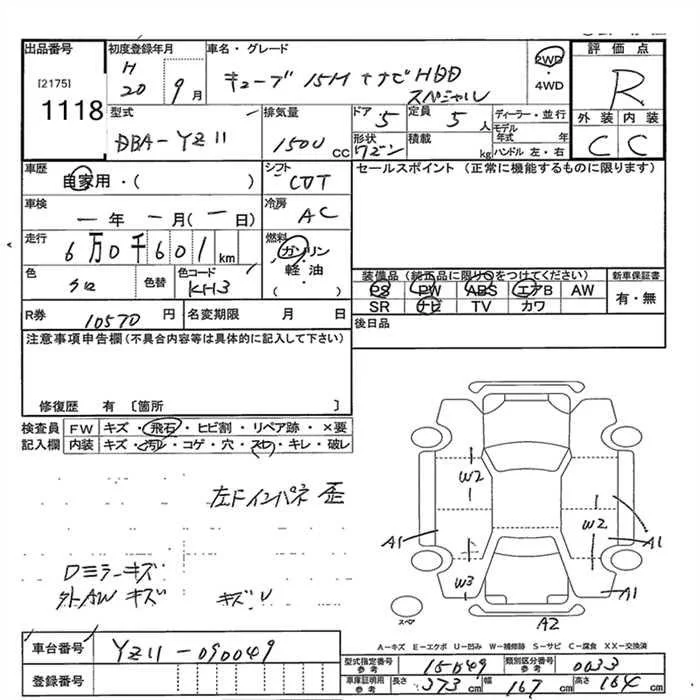 出品番号
[2175]
1118
初度登録年月
H 20 9月
車名・グレード
キューブ 15M +ナビHDD
スペシャル
2WD
・
4WD
評価点
R
外装 内装
C C
型式
DBA-YZ11
排気量
1500 CC
ドア 5
形状 ワゴン
定員 5 人
積載 kg
ディーラー・並行
モデル年式 年
ハンドル 左・右
車歴
自家用・( )
シフト
CDT
セールスポイント (正常に機能するものに限ります)
車検
一年 一月(一日)
冷房
AC
走行
6万0千601km
燃料
ガソリン
・
軽油
( )
色
クロ
色替
色コード
KH3
装備品(純正品に限り○をつけてください)
PS PW ABS エアB AW
SR ナビ TV カワ
新車保証書
有・無
R券 10570 円
名変期限 月 日
後日品
注意事項申告欄(不具合内容等は具体的に記入して下さい)
修復歴 有 [箇所 ]
検査員記入欄
FW キズ・飛石・ヒビ割・リペア跡・×要
内装 キズ・汚レ・コゲ・穴・スレ・キレ・破レ
左ドインパネ 歪
Dミラーキズ
外AW キズ
キズU
W2
W2
A1
A1
W3
A1
A2
スペア
A-キズ E-エクボ U-凹み W-補修跡 S-サビ C-腐食 XX-交換済
車台番号 YZ11-090049
登録番号
型式指定番号 参考 15049
類別区分番号 参考 0033
車庫証明用 参考 長さ 373cm 幅 167cm 高さ 164cm